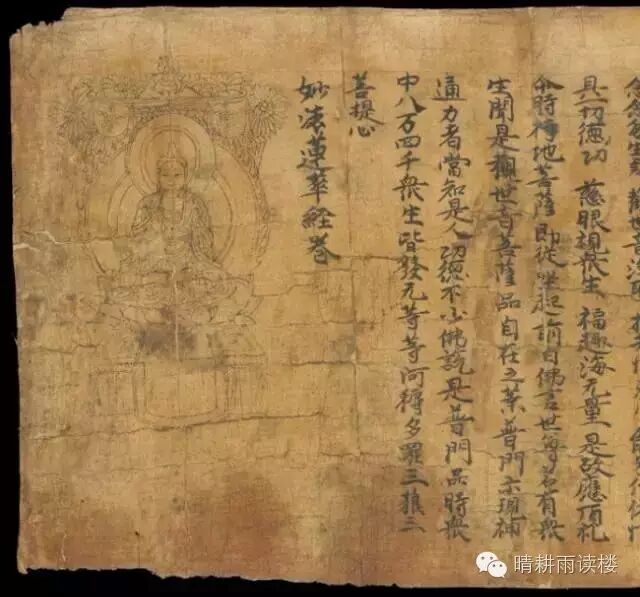 具一切德功慈眼視衆生福趣海无量是故應頂礼
尒時持地菩薩即從坐起前白佛言世尊若有衆
生聞是觀世音菩薩品自在之業普門示現神
通力者當知是人功德不少佛說是普門品時衆
中八万四千衆生皆發无等等阿耨多羅三藐三
菩提心
妙法蓮華經卷
晴耕雨读楼